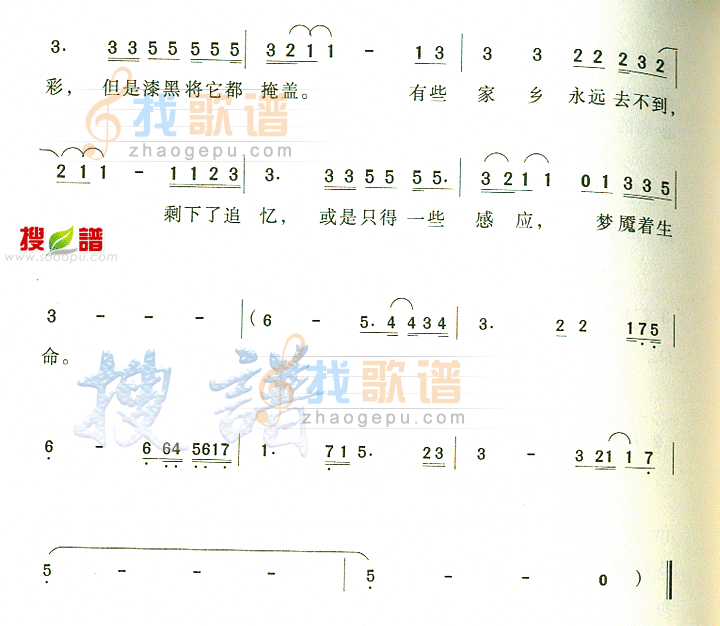 3· 33 55 555 | 3211 - 13 | 3 3 22 232 |
彩， 但是漆黑将它都 掩盖。 有些 家 乡 永远去不到，
找歌谱
zhaogepu.com
211 - 1123 | 3· 3355 55· | 3211 01 335
剩下了追 忆， 或是只得一些 感 应， 梦魇着生
搜譜
www.sooopu.com
3 - - - | (6 - 5·4 434 | 3· 22 175 |
命。
搜譜
找歌谱
zhaogepu.com
6 - 664 5617 | 1· 715· 23 | 3 - 321 17 |
5 - - - | 5 - - 0 ) ‖